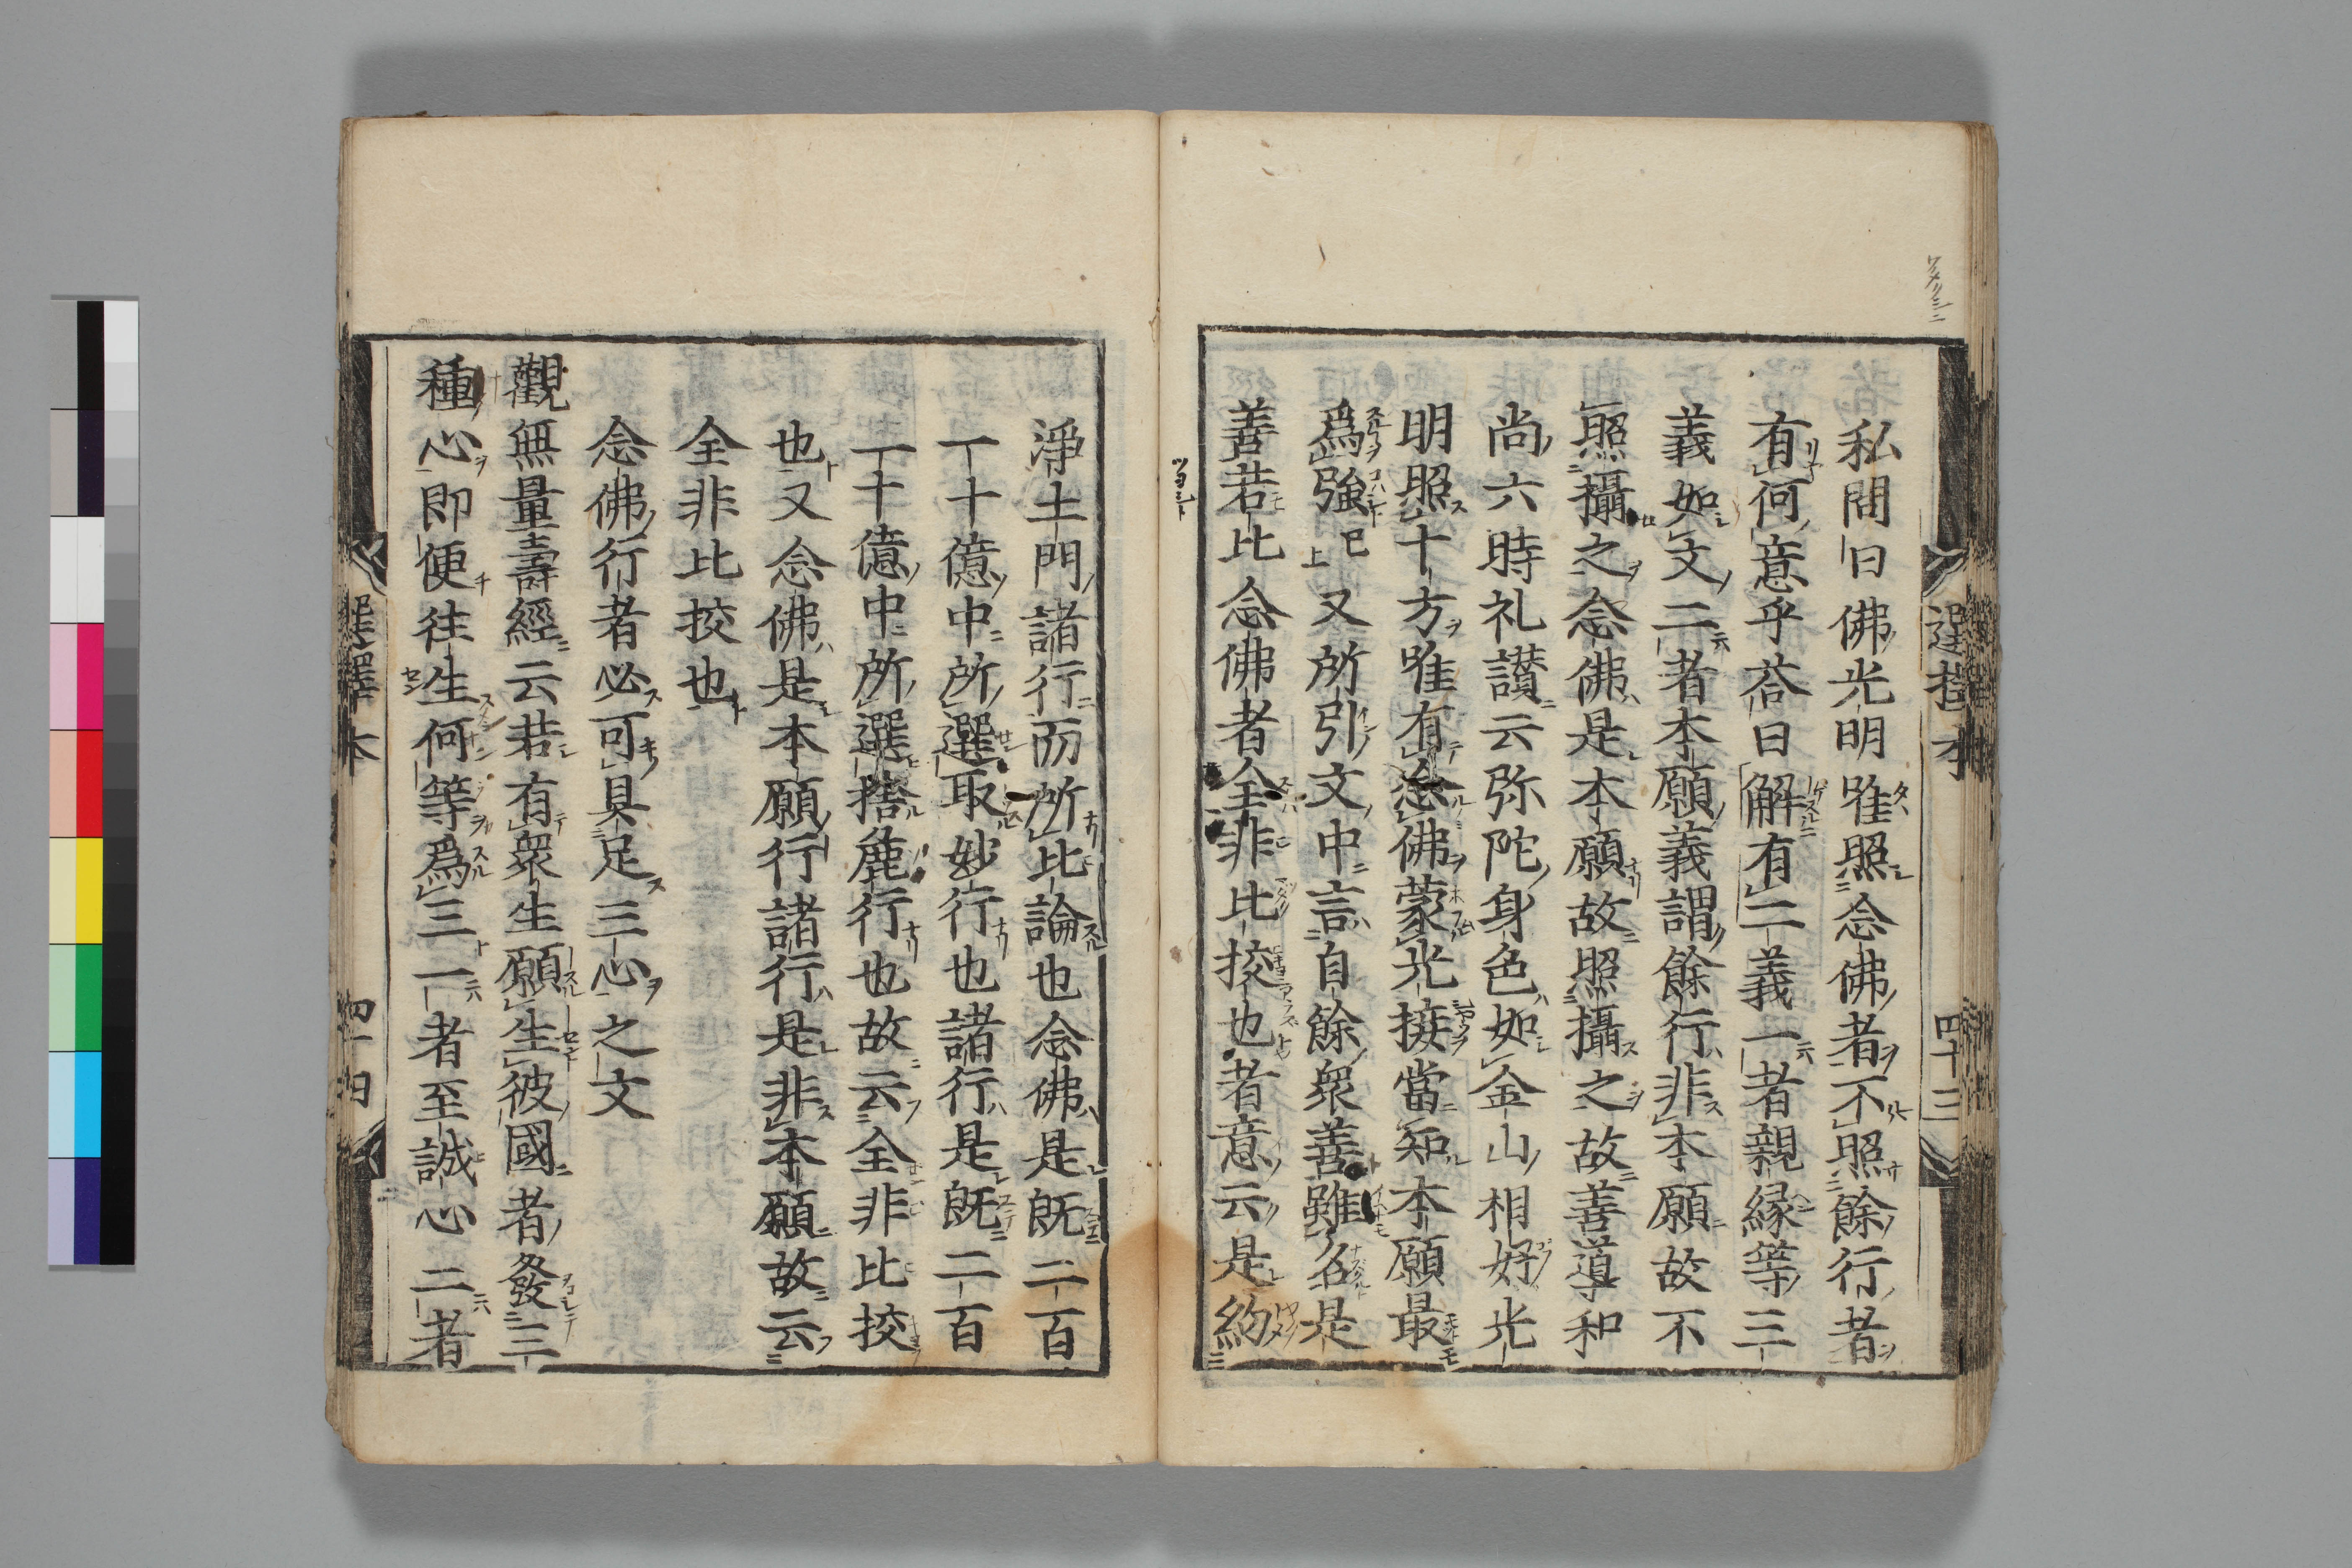 私問曰佛光明唯照念佛者不照餘行者
有何意乎荅曰解有二義一者親縁等三
義如文二者本願義謂餘行非本願故不
照攝之念佛是本願故照攝之故善導和
尚六時礼讃云弥陀身色如金山相好光
明照十方唯有念佛蒙光接當知本願最
爲強已上又所引文中言自餘衆善雖名是
善若比念佛者全非比挍也者意云是約
選擇本 四十三
淨土門諸行而所比論也念佛是既二百
一十億中所選取妙行也諸行是既二百
一十億中所選捨麁行也故云全非比挍
也又念佛是本願行諸行是非本願故云
全非比挍也
念佛行者必可具足三心之文
觀無量壽經云若有衆生願生彼國者發三
種心即便往生何等爲三一者至誠心二者
選擇本 四十四